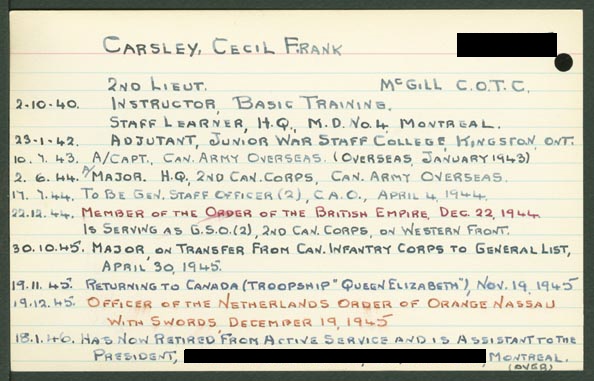 CARSLEY, CECIL FRANK
2ND LIEUT. McGILL C.O.T.C.
2-10-40. INSTRUCTOR, BASIC TRAINING.
STAFF LEARNER, H.Q., M.D. No. 4 MONTREAL.
23-1-42. ADJUTANT, JUNIOR WAR STAFF COLLEGE, KINGSTON, ONT.
10.7.43. A/CAPT., CAN. ARMY OVERSEAS. (OVERSEAS, JANUARY 1943)
2.6.44. A/MAJOR. H.Q., 2ND CAN. CORPS, CAN. ARMY OVERSEAS.
17.7.44. TO BE GEN. STAFF OFFICER (2), C.A.O., APRIL 4, 1944.
22.12.44. MEMBER OF THE ORDER OF THE BRITISH EMPIRE, DEC. 22, 1944
IS SERVING AS G.S.O.(2), 2ND CAN. CORPS, ON WESTERN FRONT.
30.10.45. MAJOR, ON TRANSFER FROM CAN. INFANTRY CORPS TO GENERAL LIST,
APRIL 30, 1945.
19.11.45. RETURNING TO CANADA (TROOPSHIP "QUEEN ELIZABETH"), NOV. 19, 1945
19.12.45. OFFICER OF THE NETHERLANDS ORDER OF ORANGE NASSAU
WITH SWORDS, DECEMBER 19, 1945
18.1.46. HAS NOW RETIRED FROM ACTIVE SERVICE AND IS ASSISTANT TO THE
PRESIDENT, MONTREAL.
(OVER)